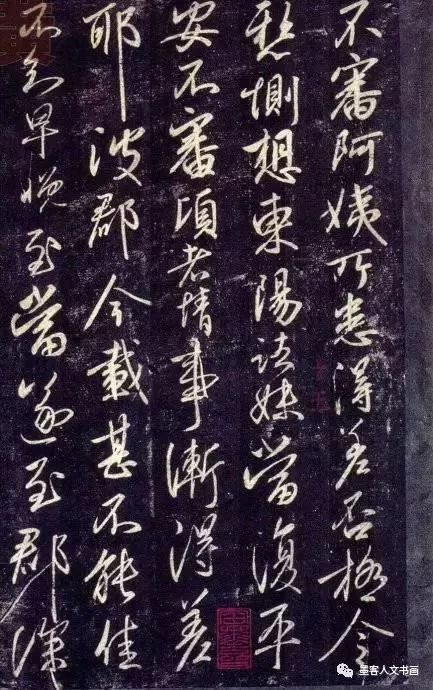 不審阿姨所患得差否極令
懸惻想東陽諸妹當復平
安不審頃者情事漸得差
耶彼郡今載甚不能佳
不知早晚至當遂至郡深
墨客人文书画